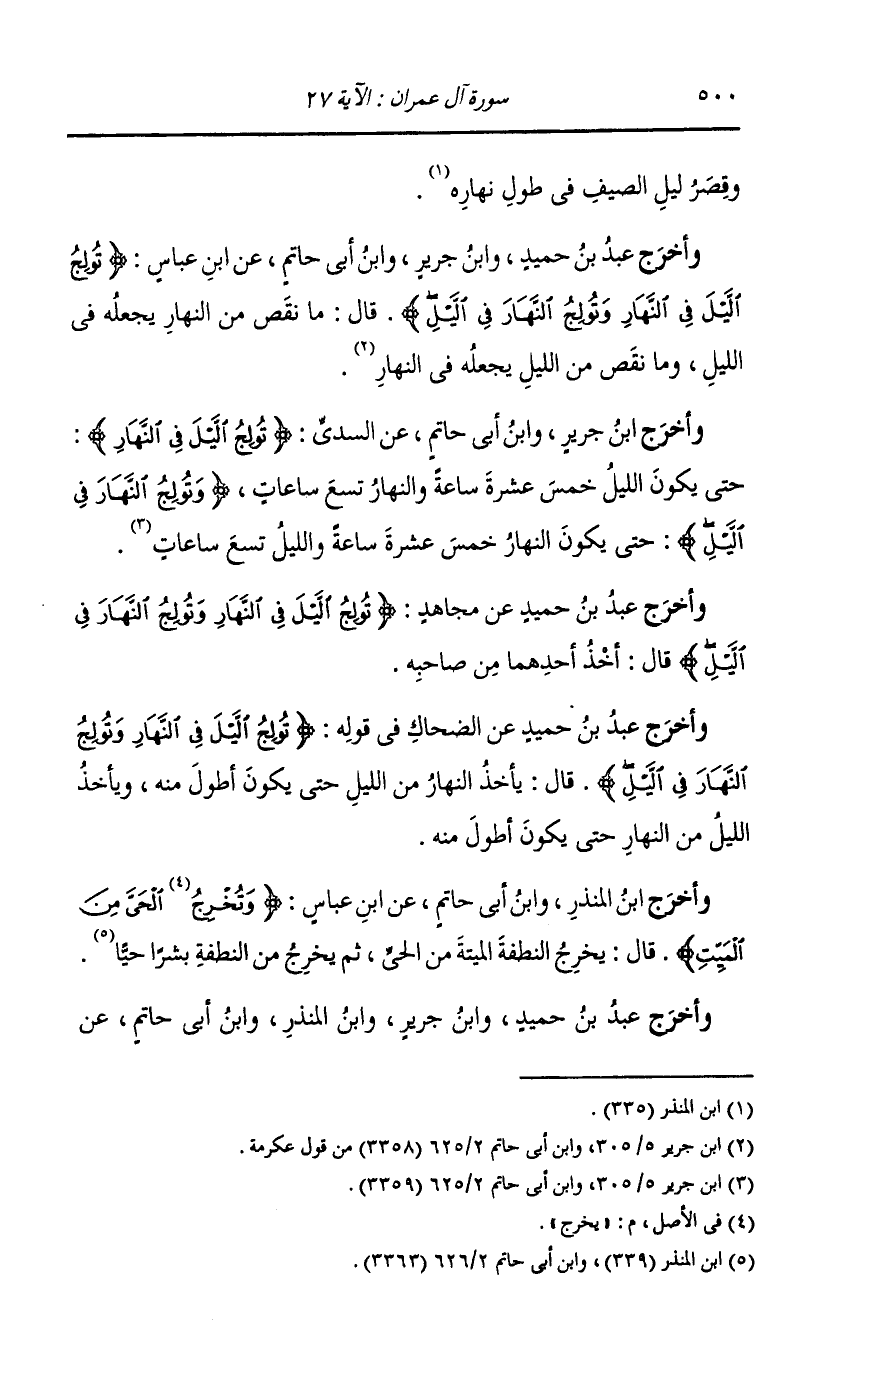 ٥٠٠ سورة آل عمران : الآية ٢٧
وقِصَرُ ليلِ الصيفِ فى طولِ نهارِه(١) .
وأخرَج عبدُ بنُ حميدٍ ، وابنُ جريرٍ ، وابنُ أبى حاتمٍ ، عن ابنِ عباسٍ : ﴿ تُولِجُ
ٱلَّيْلَ فِى ٱلنَّهَارِ وَتُولِجُ ٱلنَّهَارَ فِى ٱلَّيْلِۖ ﴾ . قال : ما نقَص من النهارِ يجعلُه فى
الليلِ ، وما نقَص من الليلِ يجعلُه فى النهارِ(٢) .
وأخرَج ابنُ جريرٍ ، وابنُ أبى حاتمٍ ، عن السدىِّ : ﴿ تُولِجُ ٱلَّيْلَ فِى ٱلنَّهَارِ ﴾ :
حتى يكونَ الليلُ خمسَ عشرةَ ساعةً والنهارُ تسعَ ساعاتٍ ، ﴿ وَتُولِجُ ٱلنَّهَارَ فِى
ٱلَّيْلِۖ ﴾ : حتى يكونَ النهارُ خمسَ عشرةَ ساعةً والليلُ تسعَ ساعاتٍ(٣) .
وأخرَج عبدُ بنُ حميدٍ عن مجاهدٍ : ﴿ تُولِجُ ٱلَّيْلَ فِى ٱلنَّهَارِ وَتُولِجُ ٱلنَّهَارَ فِى
ٱلَّيْلِۖ ﴾ قال : أخْذُ أحدِهما مِن صاحبِه .
وأخرَج عبدُ بنُ حميدٍ عن الضحاكِ فى قولِه : ﴿ تُولِجُ ٱلَّيْلَ فِى ٱلنَّهَارِ وَتُولِجُ
ٱلنَّهَارَ فِى ٱلَّيْلِۖ ﴾ . قال : يأخذُ النهارُ من الليلِ حتى يكونَ أطولَ منه ، ويأخذُ
الليلُ من النهارِ حتى يكونَ أطولَ منه .
وأخرَج ابنُ المنذرِ ، وابنُ أبى حاتمٍ ، عن ابنِ عباسٍ : ﴿ وَتُخْرِجُ(٤) ٱلْحَىَّ مِنَ
ٱلْمَيِّتِ﴾ . قال : يخرِجُ النطفةَ الميتةَ من الحىِّ ، ثم يخرِجُ من النطفةِ بشرًا حيًّا(٥) .
وأخرَج عبدُ بنُ حميدٍ ، وابنُ جريرٍ ، وابنُ المنذرِ ، وابنُ أبى حاتمٍ ، عن
(١) ابن المنذر (٣٣٥) .
(٢) ابن جرير ٥/ ٣٠٥، وابن أبى حاتم ٦٢٥/٢ (٣٣٥٨) من قول عكرمة .
(٣) ابن جرير ٥/ ٣٠٥، وابن أبى حاتم ٦٢٥/٢ (٣٣٥٩) .
(٤) فى الأصل ، م : « يخرج » .
(٥) ابن المنذر (٣٣٩) ، وابن أبى حاتم ٦٢٦/٢ (٣٣٦٣) .